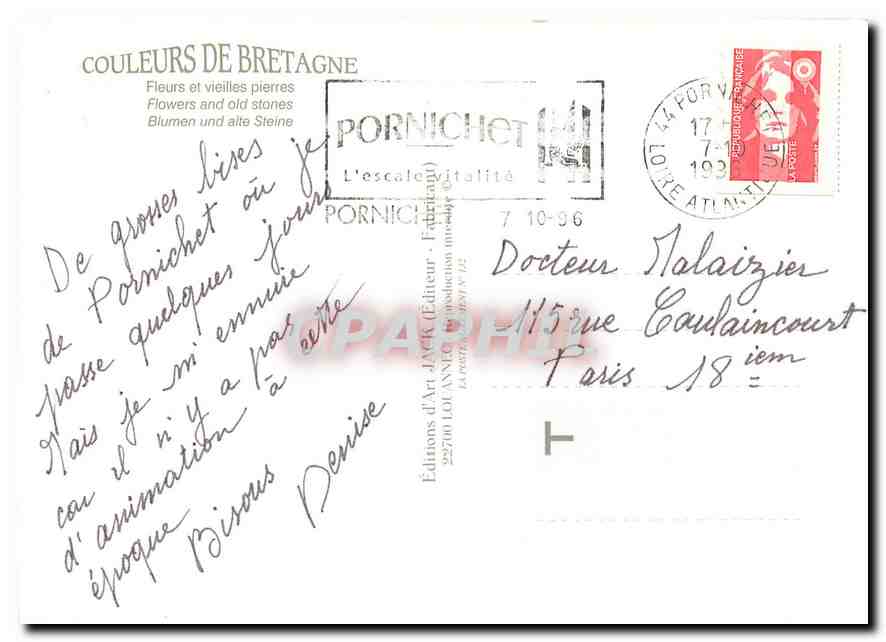 COULEURS DE BRETAGNE
Fleurs et vieilles pierres
Flowers and old stones
Blumen und alte Steine
De grosses bises
de Pornichet où je
passe quelques jours
Mais je m'ennuie
car il n'y a pas
d'animation à cette
époque
Bisous
Denise
PORNICHET
L'escale vitalité
PORNICHET
7 10-96
44 PORNICHET
17
7-10
199
LOIRE ATLANTIQUE
RÉPUBLIQUE FRANÇAISE
LA POSTE
Éditions d'Art JACK (Éditeur - Fabricant)
22700 LOUANNEC Reproduction interdite ©
LA POSTE AGRÉMENT N° 132
Docteur Malaizier
115 rue Caulaincourt
Paris 18 iem
T
CPAPHIL